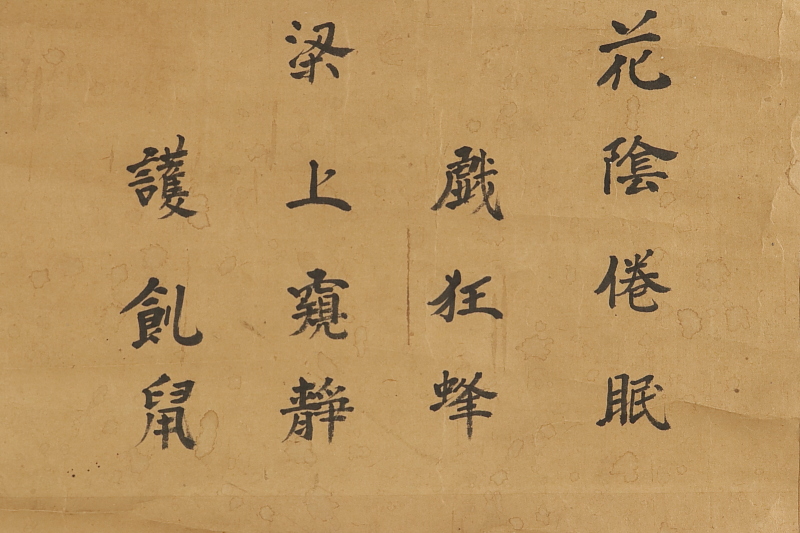 花陰倦眠
戯狂蜂
梁上窺静
護飢鼠